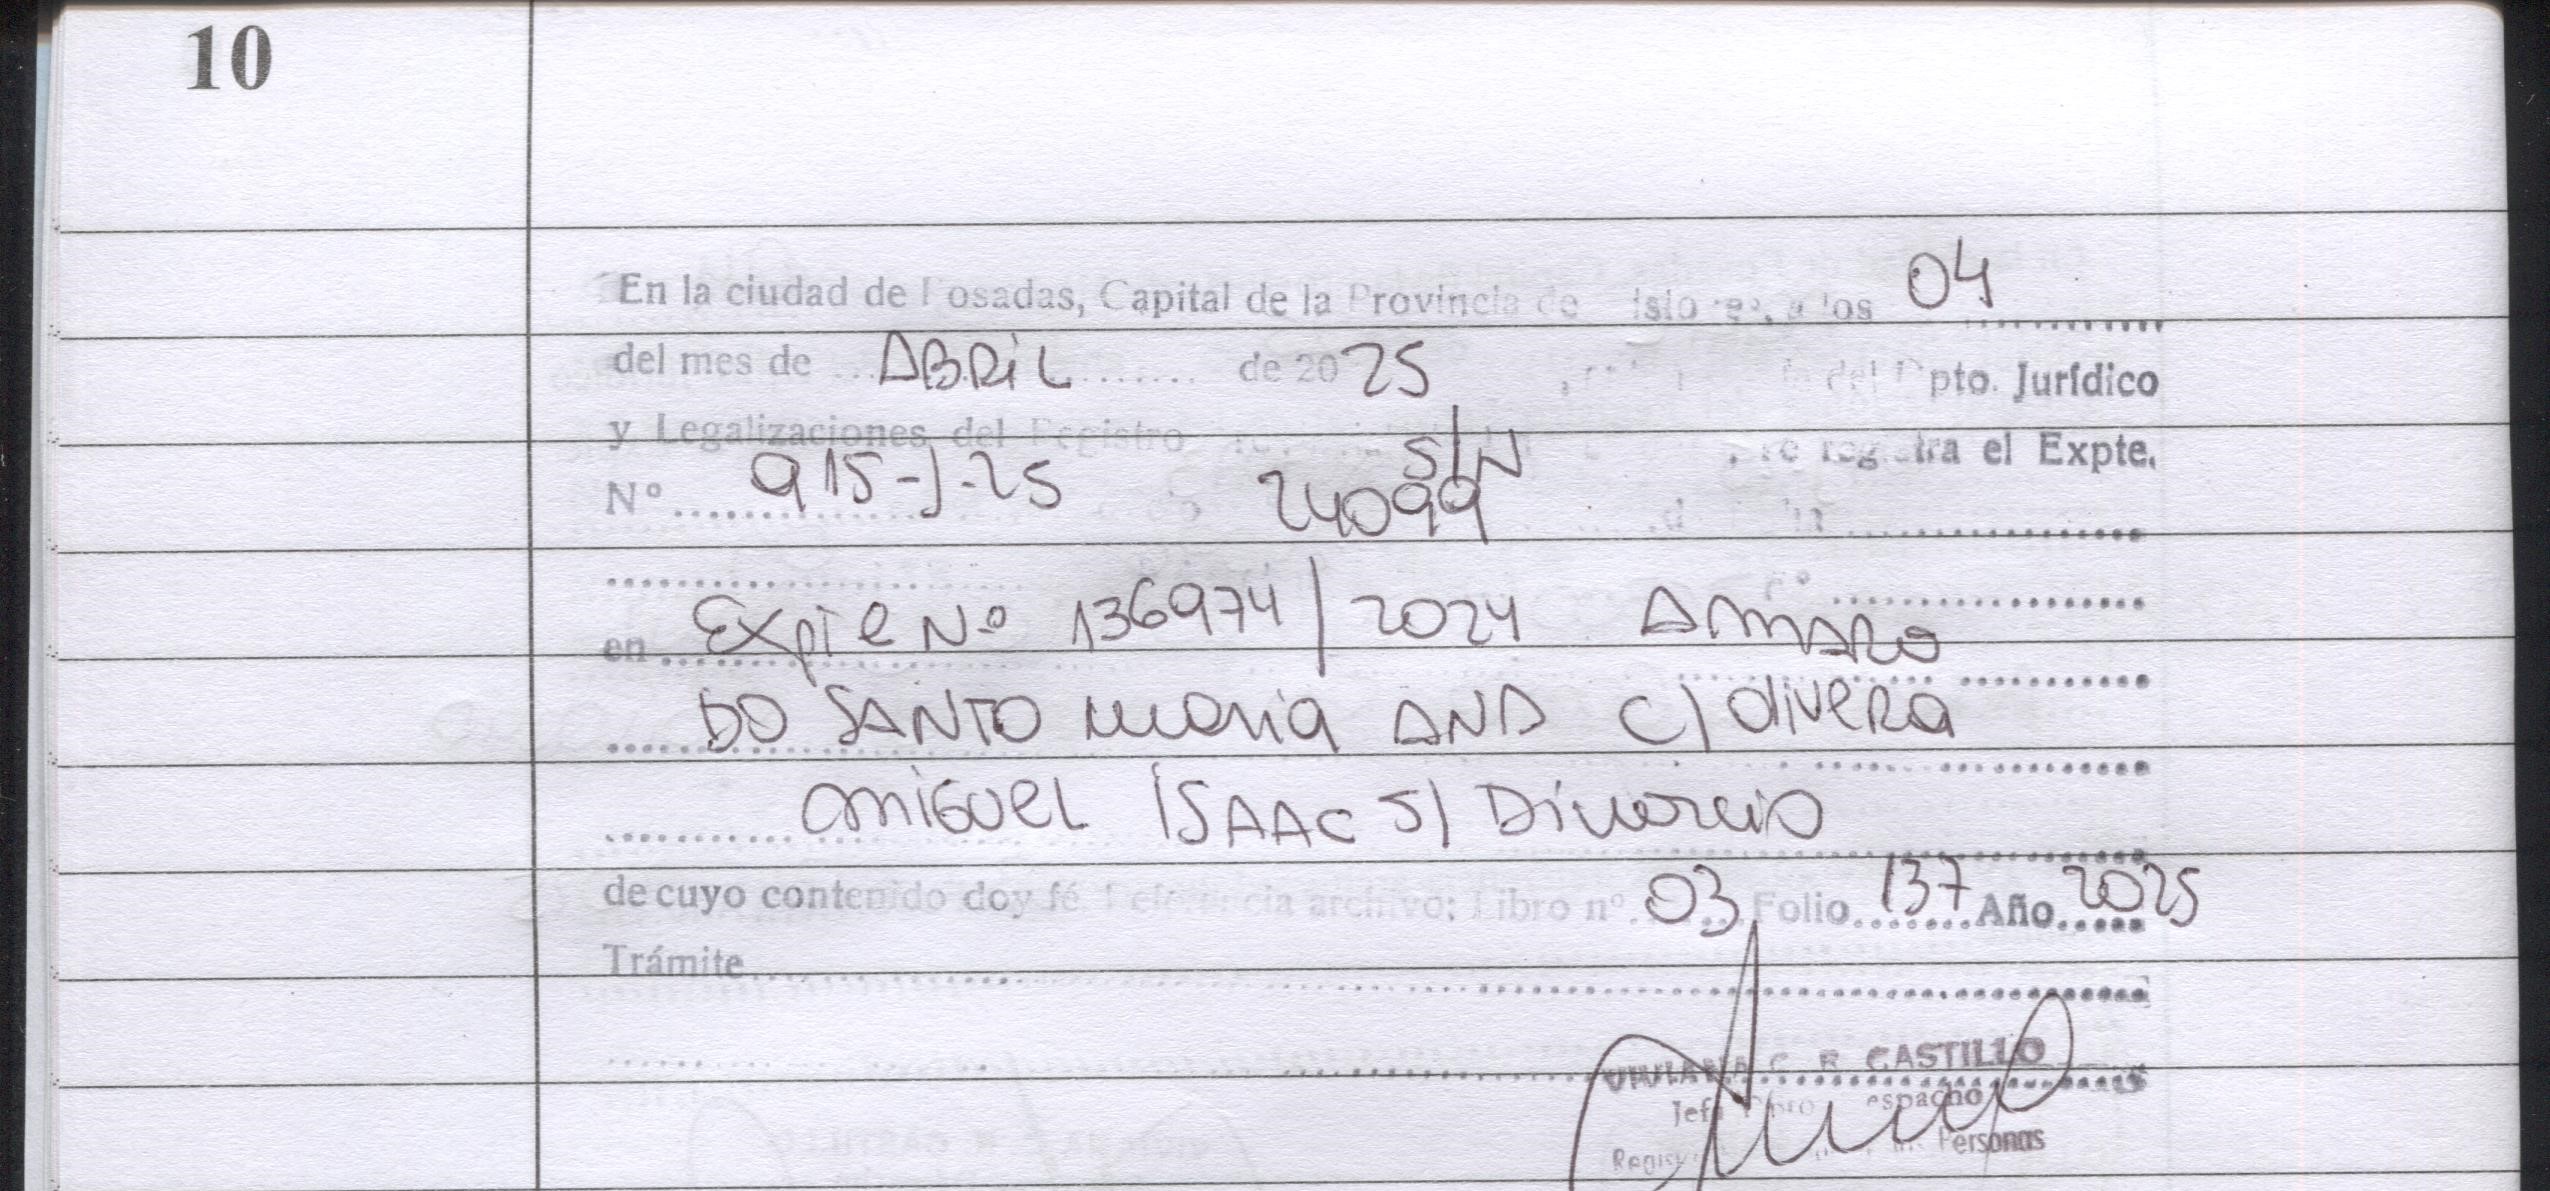 10
En la ciudad de Posadas, Capital de la Provincia de Misiones, a los 04
del mes de ABRIL de 2025 del Dpto. Jurídico
y Legalizaciones del Registro se registra el Expte.
S/N
Nº 915-J-25 24099
Expte Nº 136974/2024 AMARO
en
DO SANTO Maria ANA C/ Olivera
Miguel ISAAC S/ Divorcio
de cuyo contenido doy fé Referencia archivo: Libro nº 03 Folio 137 Año 2025
Trámite
C. R CASTILLO
Jefa Dpto Despacho
Personas